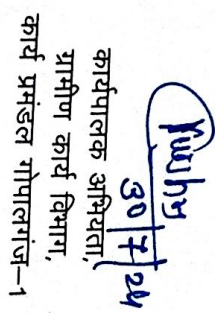 30/7/24
कार्यपालक अभियंता,
ग्रामीण कार्य विभाग,
कार्य प्रमंडल गोपालगंज-1